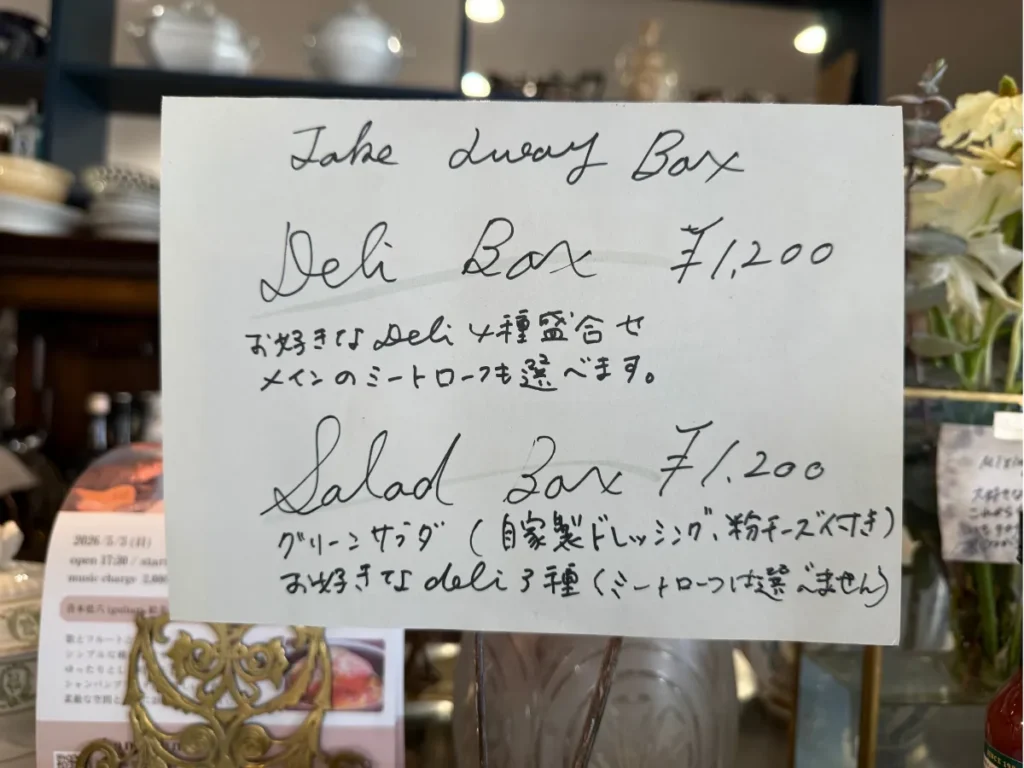 Take away Box
Deli Box ¥1,200
お好きなDeli 4種盛合せ
メインのミートローフも選べます。
Salad Box ¥1,200
グリーンサラダ (自家製ドレッシング、粉チーズ付き)
お好きなdeli 3種 (ミートローフは選べません)
2026/5/3 (日)
open 17:30 / start
music charge 2,000
歌とフルート
シンプルな
ゆったりとし
シャンパン
素敵な空間と